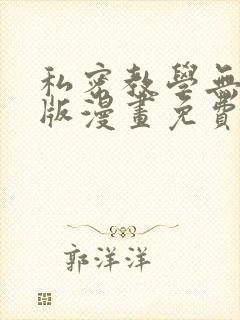 私密教學無
版漫畫免費
郭洋洋